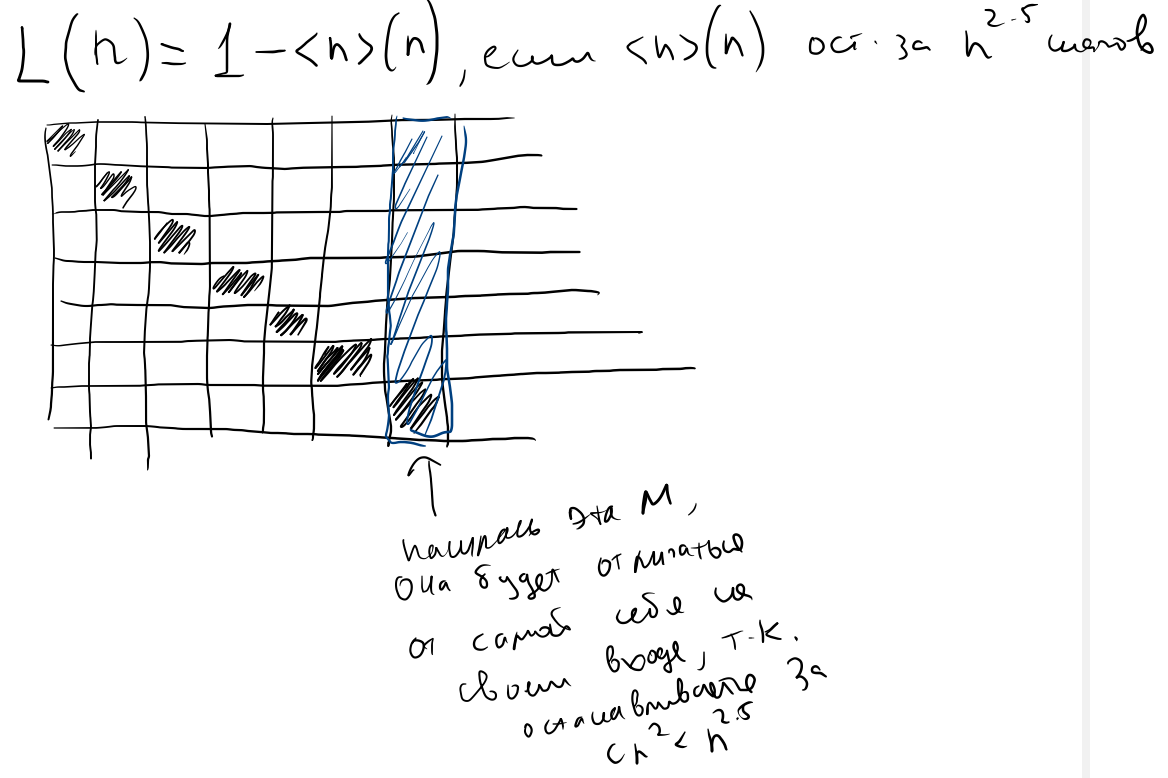 L(n) = 1 - <n>(n), если <n>(n) ост. за n^2.5 шагов
нашлась эта M,
она будет отличаться
от самой себя на
своем входе, т.к.
останавливается за
cn^2 < n^2.5